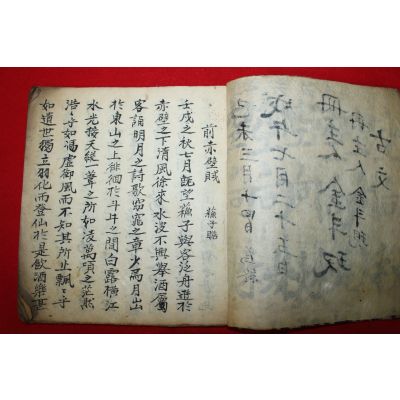 古文
冊主人 金斗
冊主人 金斗
年七月二十五日
己未三月十四日
前赤壁賦 蘓子瞻
壬戌之秋七月旣望蘓子與客泛舟遊於
赤壁之下清風徐來水波不興舉酒屬
客誦明月之詩歌窈窕之章少焉月出
於東山之上徘徊於斗牛之間白露橫江
水光接天縱一葦之所如凌萬頃之茫然
浩〻乎如馮虛御風而不知其所止飄〻乎
如遺世獨立羽化而登仙於是飲酒樂甚